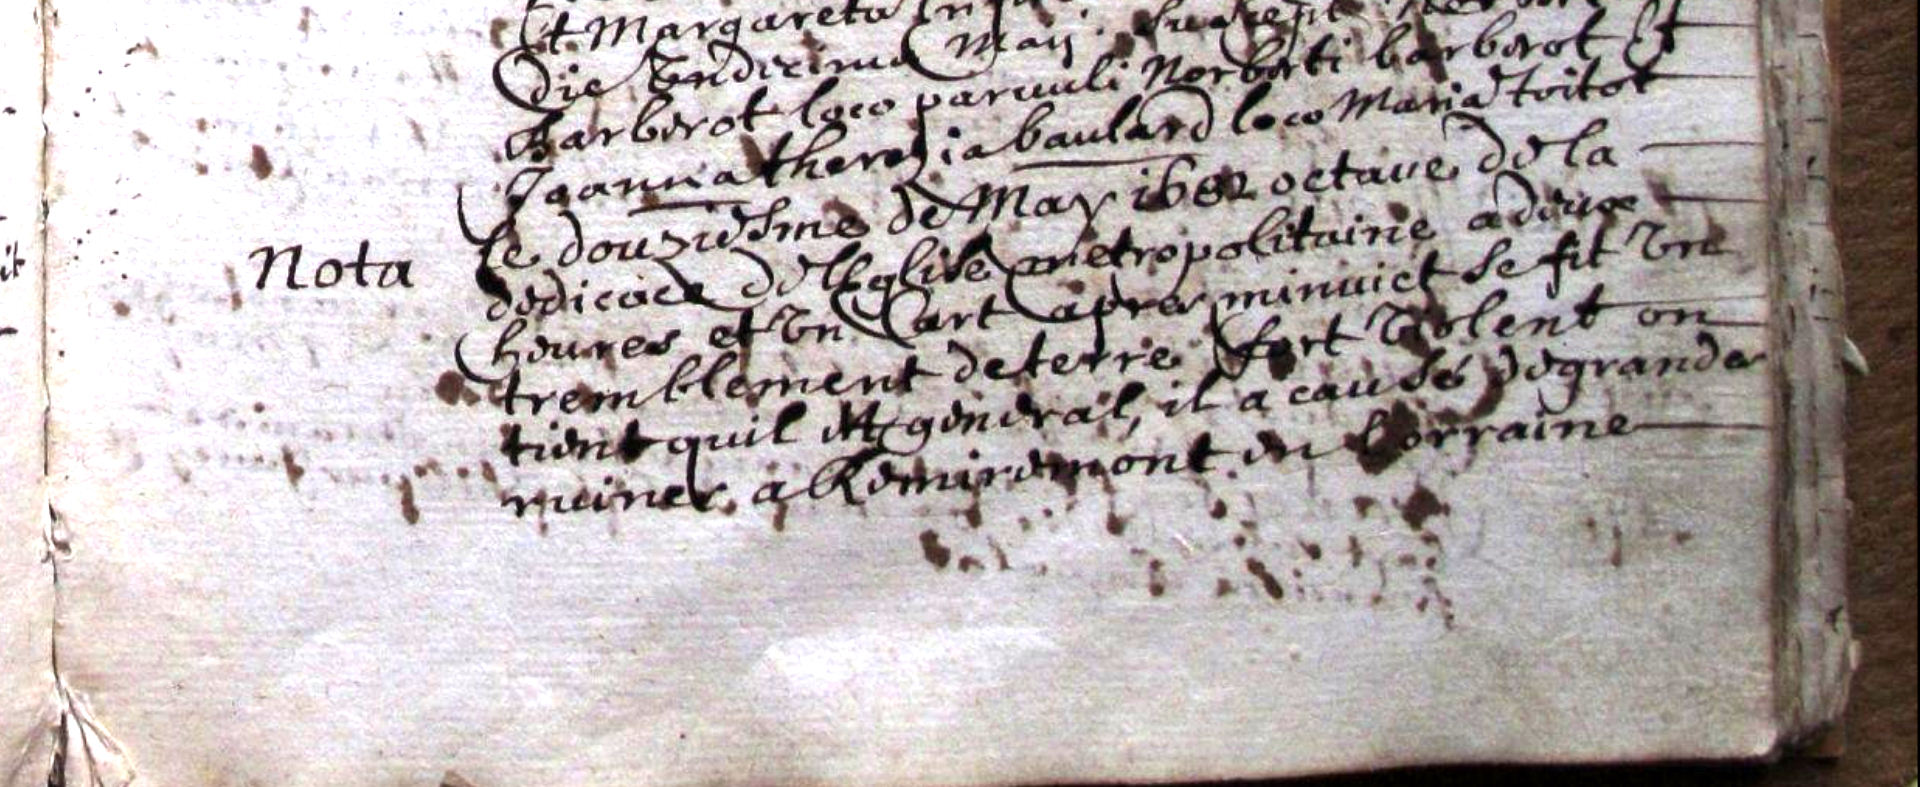 Et Margareta
die undecima Maij. Suscep
Barberot loco paruuli Norberti barberot Et
Joanna theresia baulard loco Maria toitot
Nota
Le douziesme de May 1682 octaue de la
dedicace de lEglise metropolitaine a deux
heures et vn Cart apres minuict se fit vn
tremblement de terre fort violent on
tient quil est general, il a causé de grandes
ruines a Remiremont en Lorraine